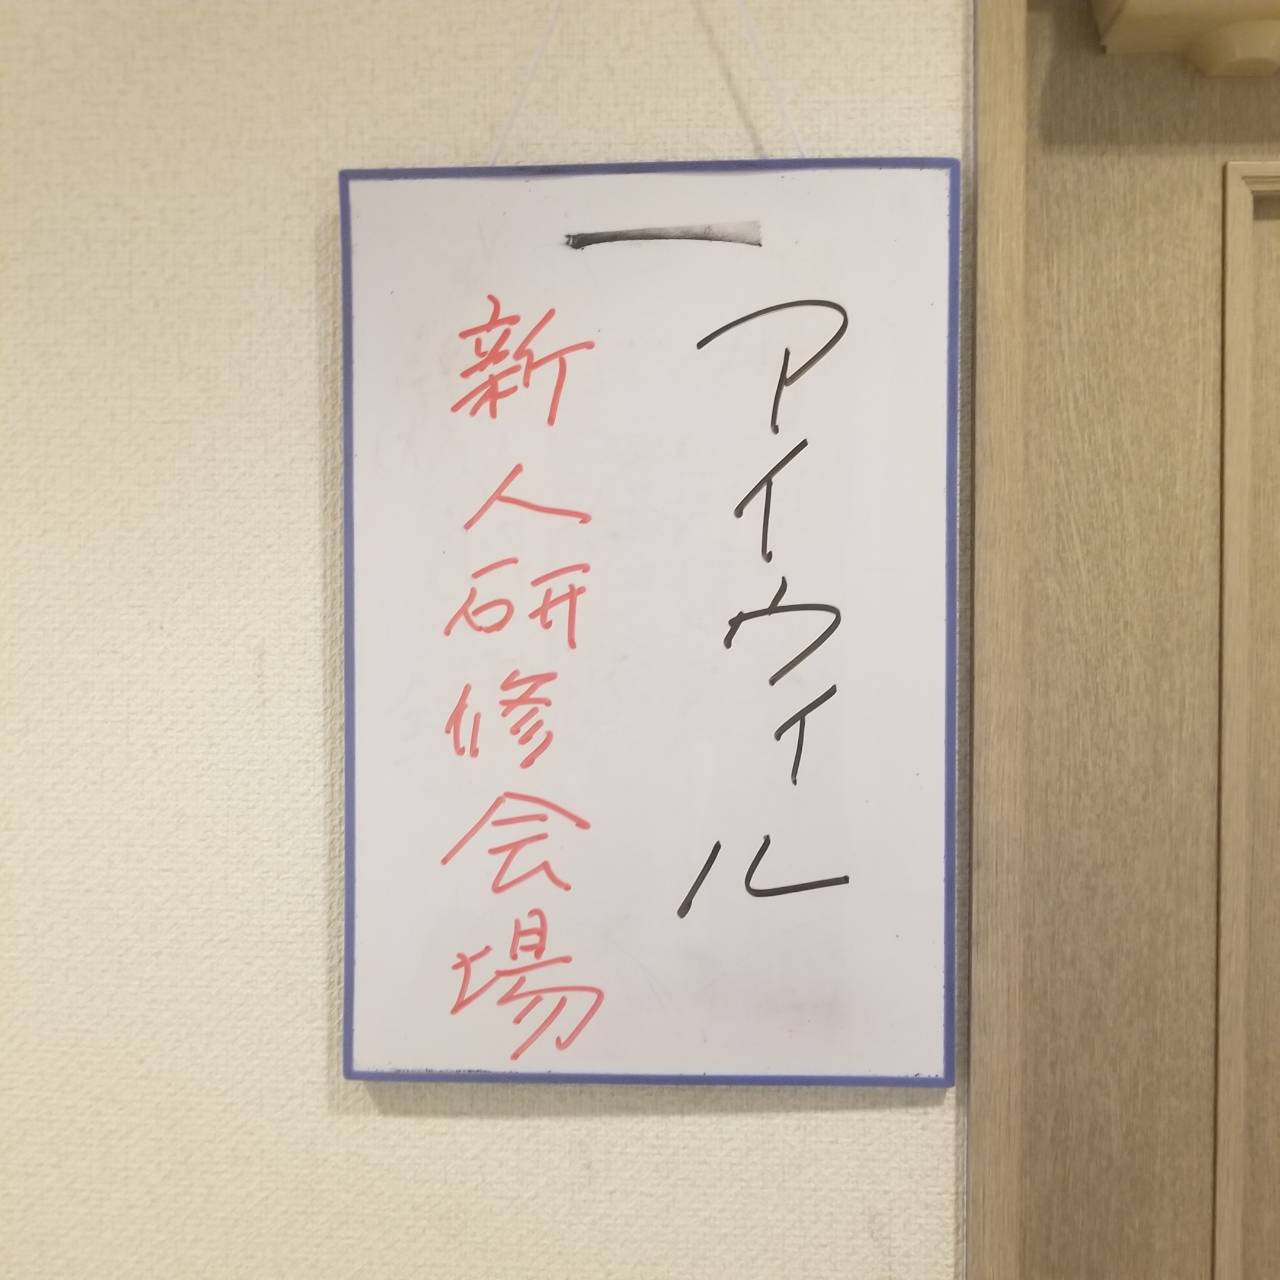 アイウィル
新人研修会場